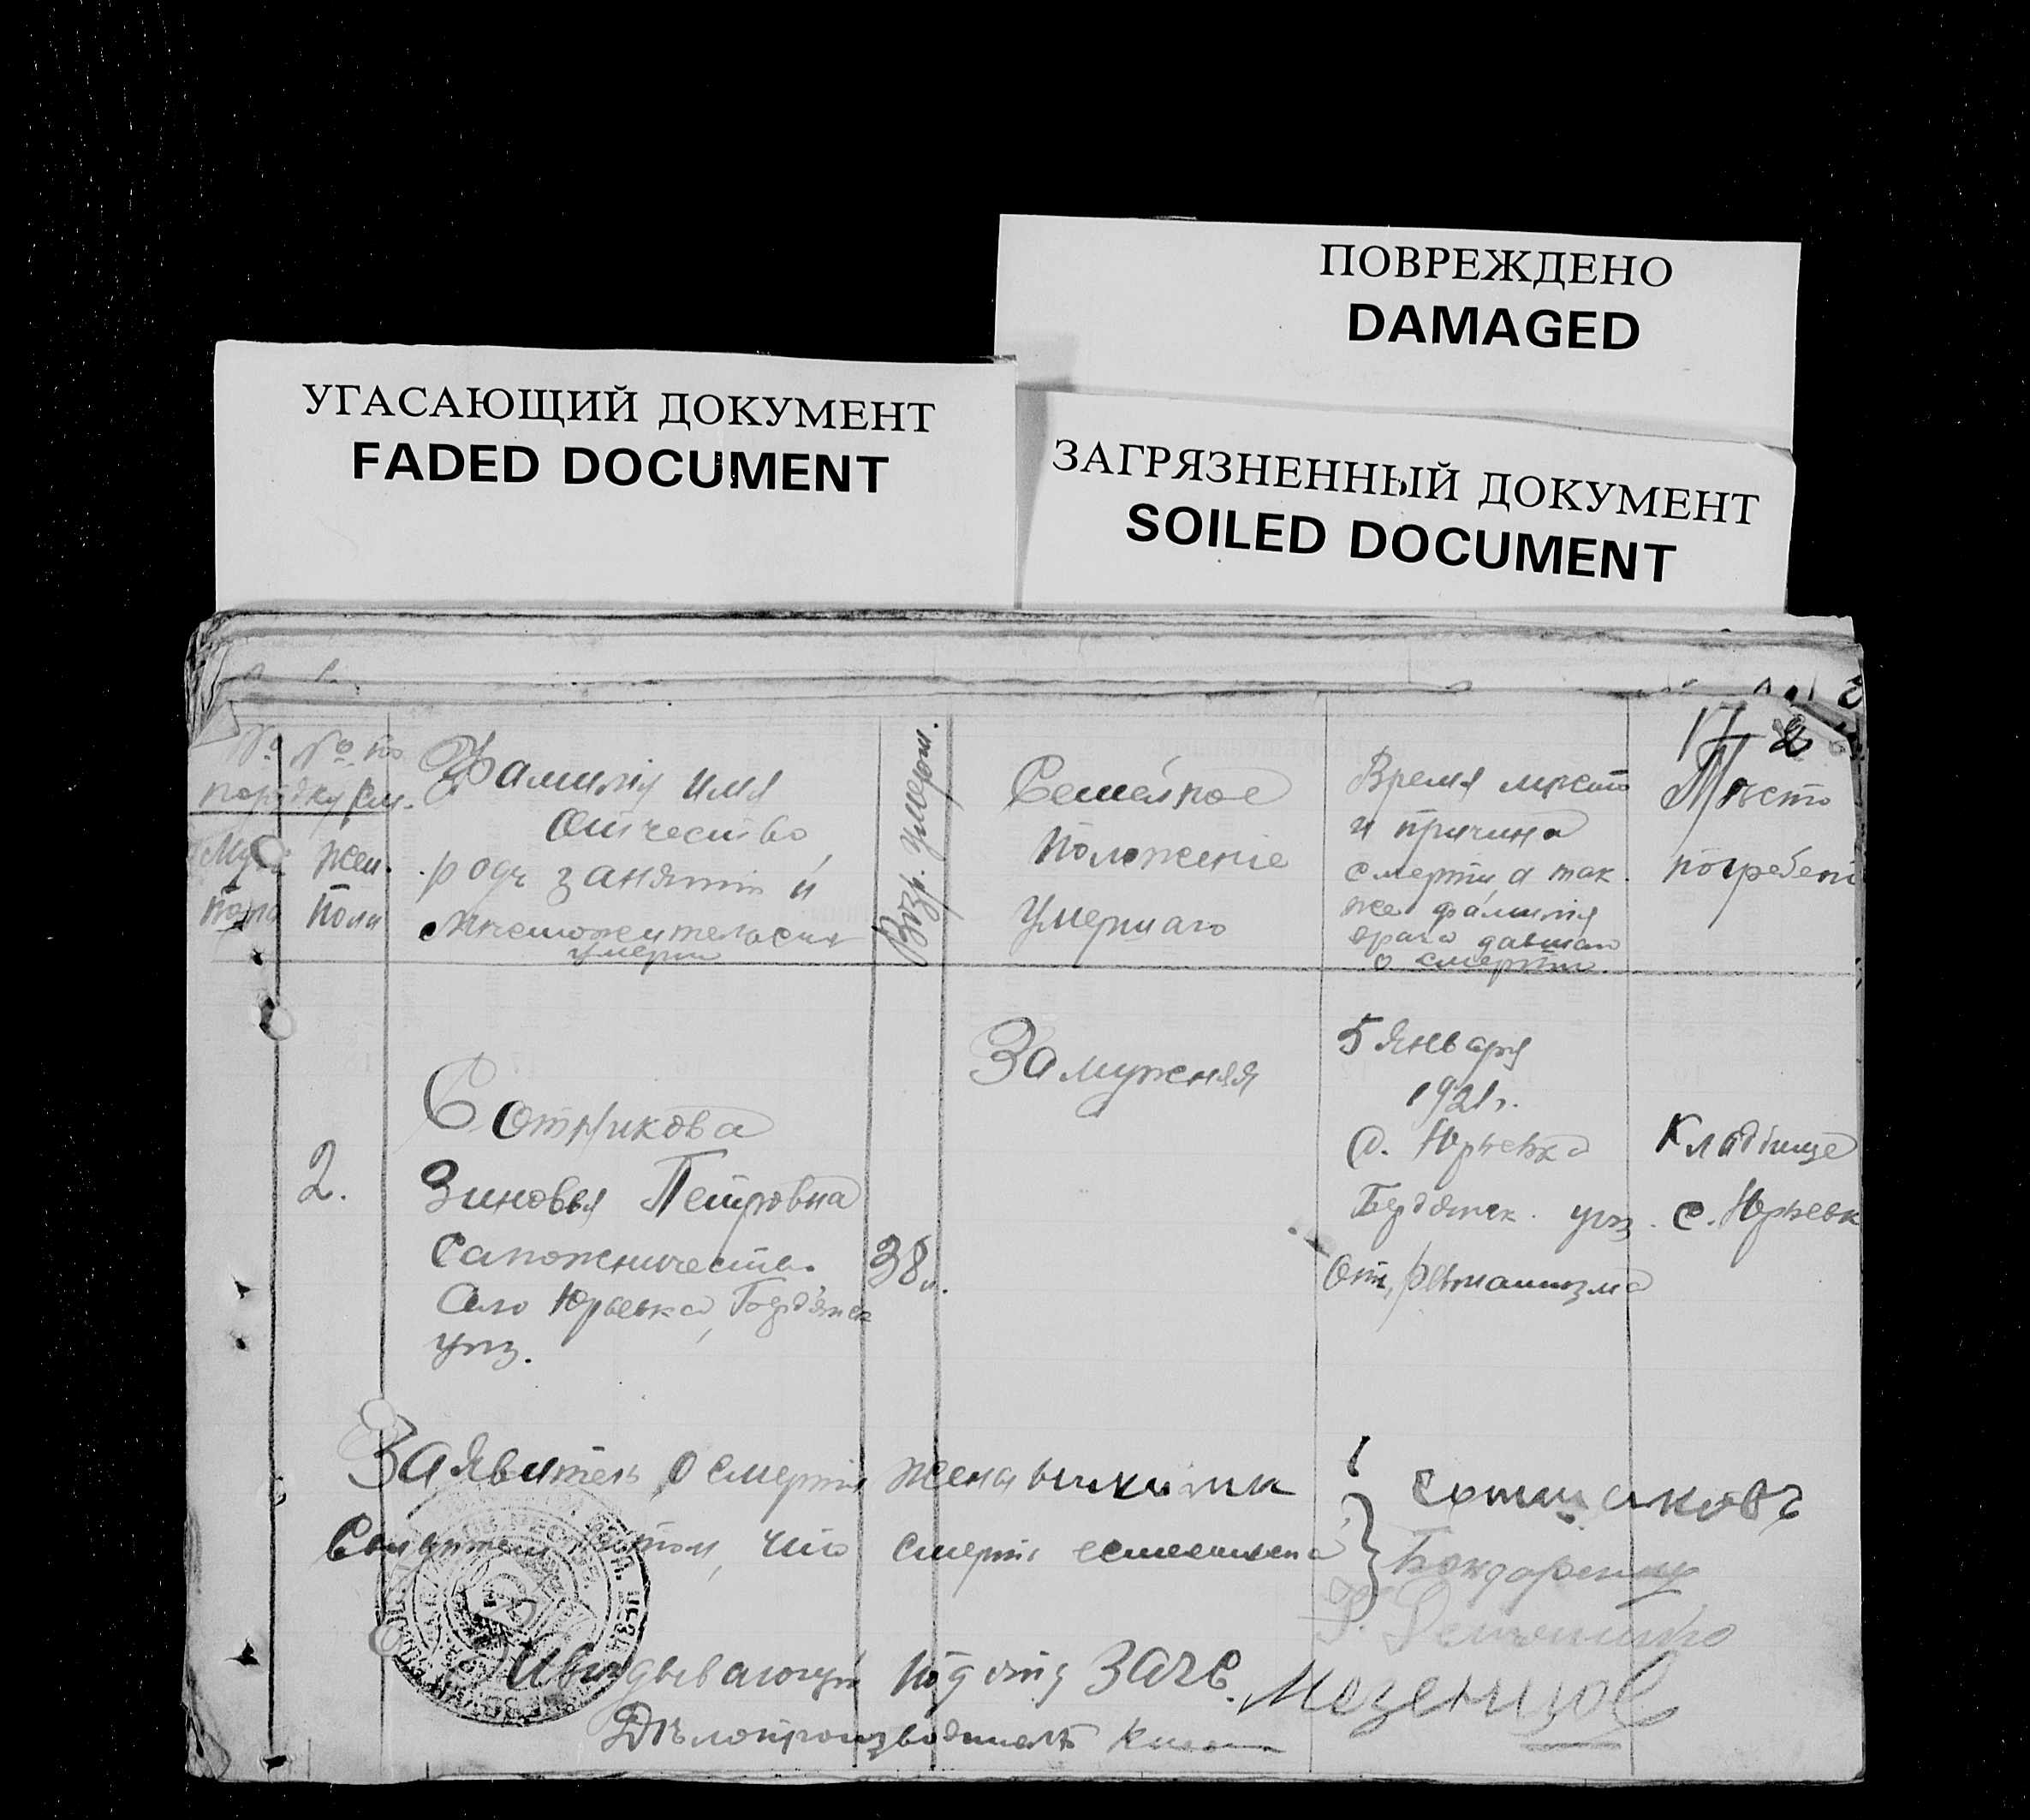 ПОВРЕЖДЕНО
DAMAGED
УГАСАЮЩИЙ ДОКУМЕНТ
FADED DOCUMENT
ЗАГРЯЗНЕННЫЙ ДОКУМЕНТ
SOILED DOCUMENT
№ № по
порядку
Муж Жен.
пола пола
Фамилія имя
отчество,
родъ занятій и
умерш
Возр. умерш.
Семейное
положеніе
умершаго
Время место
и причина
смерти, а так
же фамилія
врача давшаго
о смерти
17
Место
погребені
2.
Сотникова
Зиновья Петровна
Сапожничество
Село Юрьевка, Бердянск
уез.
38 л.
Замужняя
5 Января
1921 г.
с. Юрьевка
Бердянск. уез.
От, ревматизма
Кладбище
с. Юрьевк
Заявитель о смерти жена
Свидетели том, что смерть естественна
Сотниковъ
Бондаренко
Завидывающій подотд ЗАГС. Мезенцов
Делопроизводитель